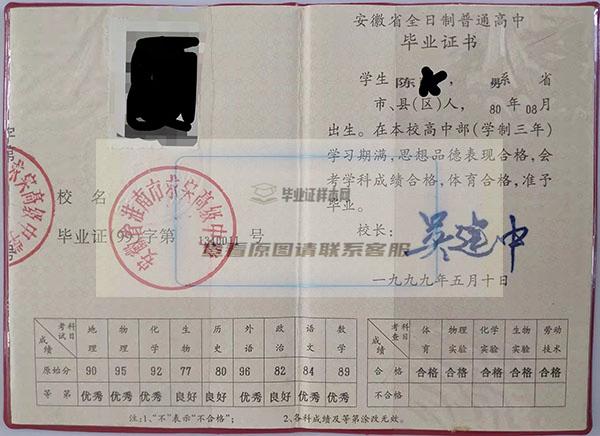 安徽省全日制普通高中
毕业证书
学生 陈 , 男 系 省
市、县(区)人, 80 年 08 月
出生。在本校高中部(学制三年)
学习期满, 思想品德表现合格, 会
考学科成绩合格, 体育合格, 准予
毕业。
校长: 吴建中
一九九九年五月十日
校 名
毕业证(99)字第 号
字
第
号
毕业证样本网
查看原图请联系客服
考试科目 成绩 地理 物理 化学 生物 历史 外语 政治 语文 数学
原始分 90 95 92 77 80 96 82 84 89
等 第 优秀 优秀 优秀 良好 良好 优秀 良好 优秀 优秀
考查科目 成绩 体育 物理实验 化学实验 生物实验 劳动技术
合 格 合格 合格 合格 合格 合格
不合格
注:1、“不”表示“不合格”; 2、各科成绩及等第涂改无效。